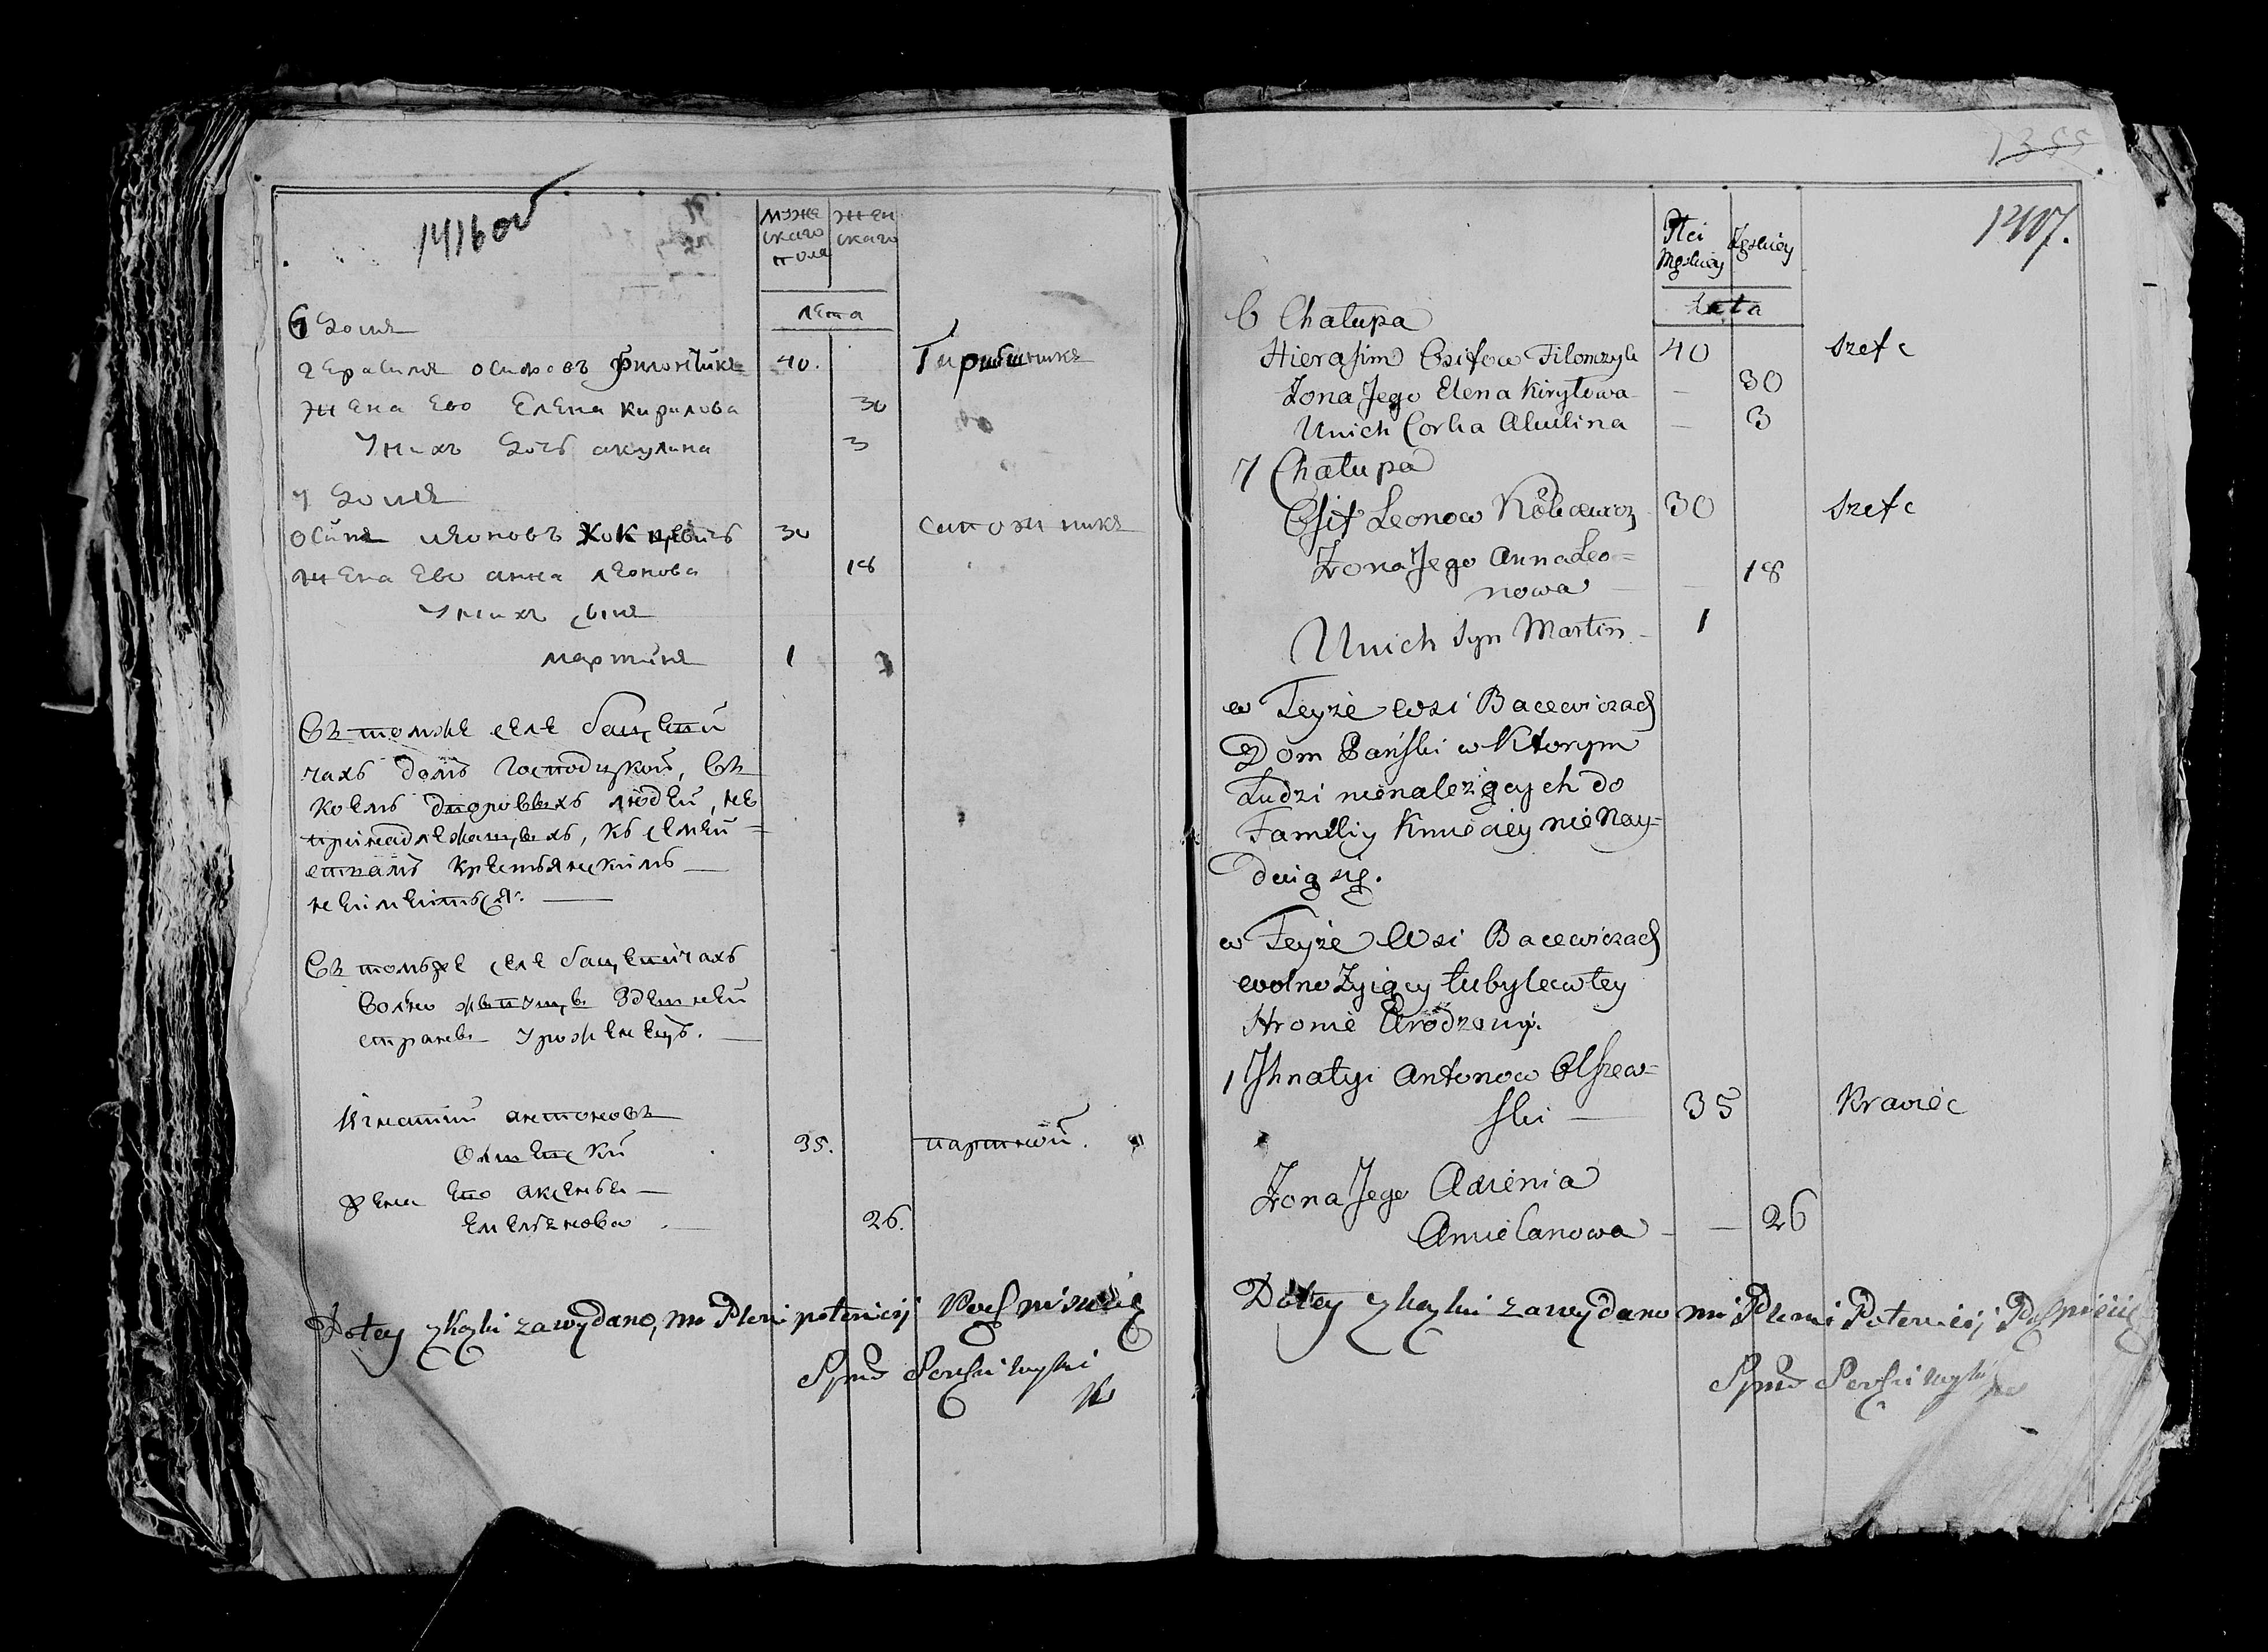 1416 об
муже
скаго
пола
жен
скаго
лета
6 домъ
герасимъ осиповъ филончикъ 40.
жена ево Елена кирилова 30
У нихъ дочь акулина 3
7 домъ
осипъ леоновъ 30 сапожникъ
жена ево анна леонова 18
У нихъ сынъ
мартинъ 1
Въ томже селе бацеви
чахъ домъ господской, въ
коемъ дворовыхъ людей, не
принадлежащихъ, къ семей
ствамъ крестьянскимъ
не имеитьця.
Въ томже селе бацевичахъ
вольно живущъ здешней
страны уроженецъ.
Игнатий антоновъ
Олшевский 35. партной.
жена ево аксенья
Емельянова 26.
Do tey zkazki zawydano, mi Pleni potencij
1355
1417.
Płci
Męskiey
Żęskiey
Lata
6 Chałupa
Hierasim Osifow Filonczyk 40 szefc
Żona Jego Elena Kiryłowa 30
U nich Corka Akulina 3
7 Chałupa
Osif Leonow 30 szefc
Żona Jego Anna Leo=
nowa 18
U nich syn Martin 1
w Teyże wsi Bacewiczach
Dom Pański w Ktorym
Ludzi nienależących do
Familiy Kmieciey nie Nay=
duią się.
w Teyże Wsi Bacewiczach
wolno Żyiący tubylec w tey
stronie Urodzony.
1 Ihnatyi Antonow Olszew=
ski 35 Krawiec
Żona Jego Axienia
Amielanowa 26
Do tey zkazki zawydano mi Pleni Potencij